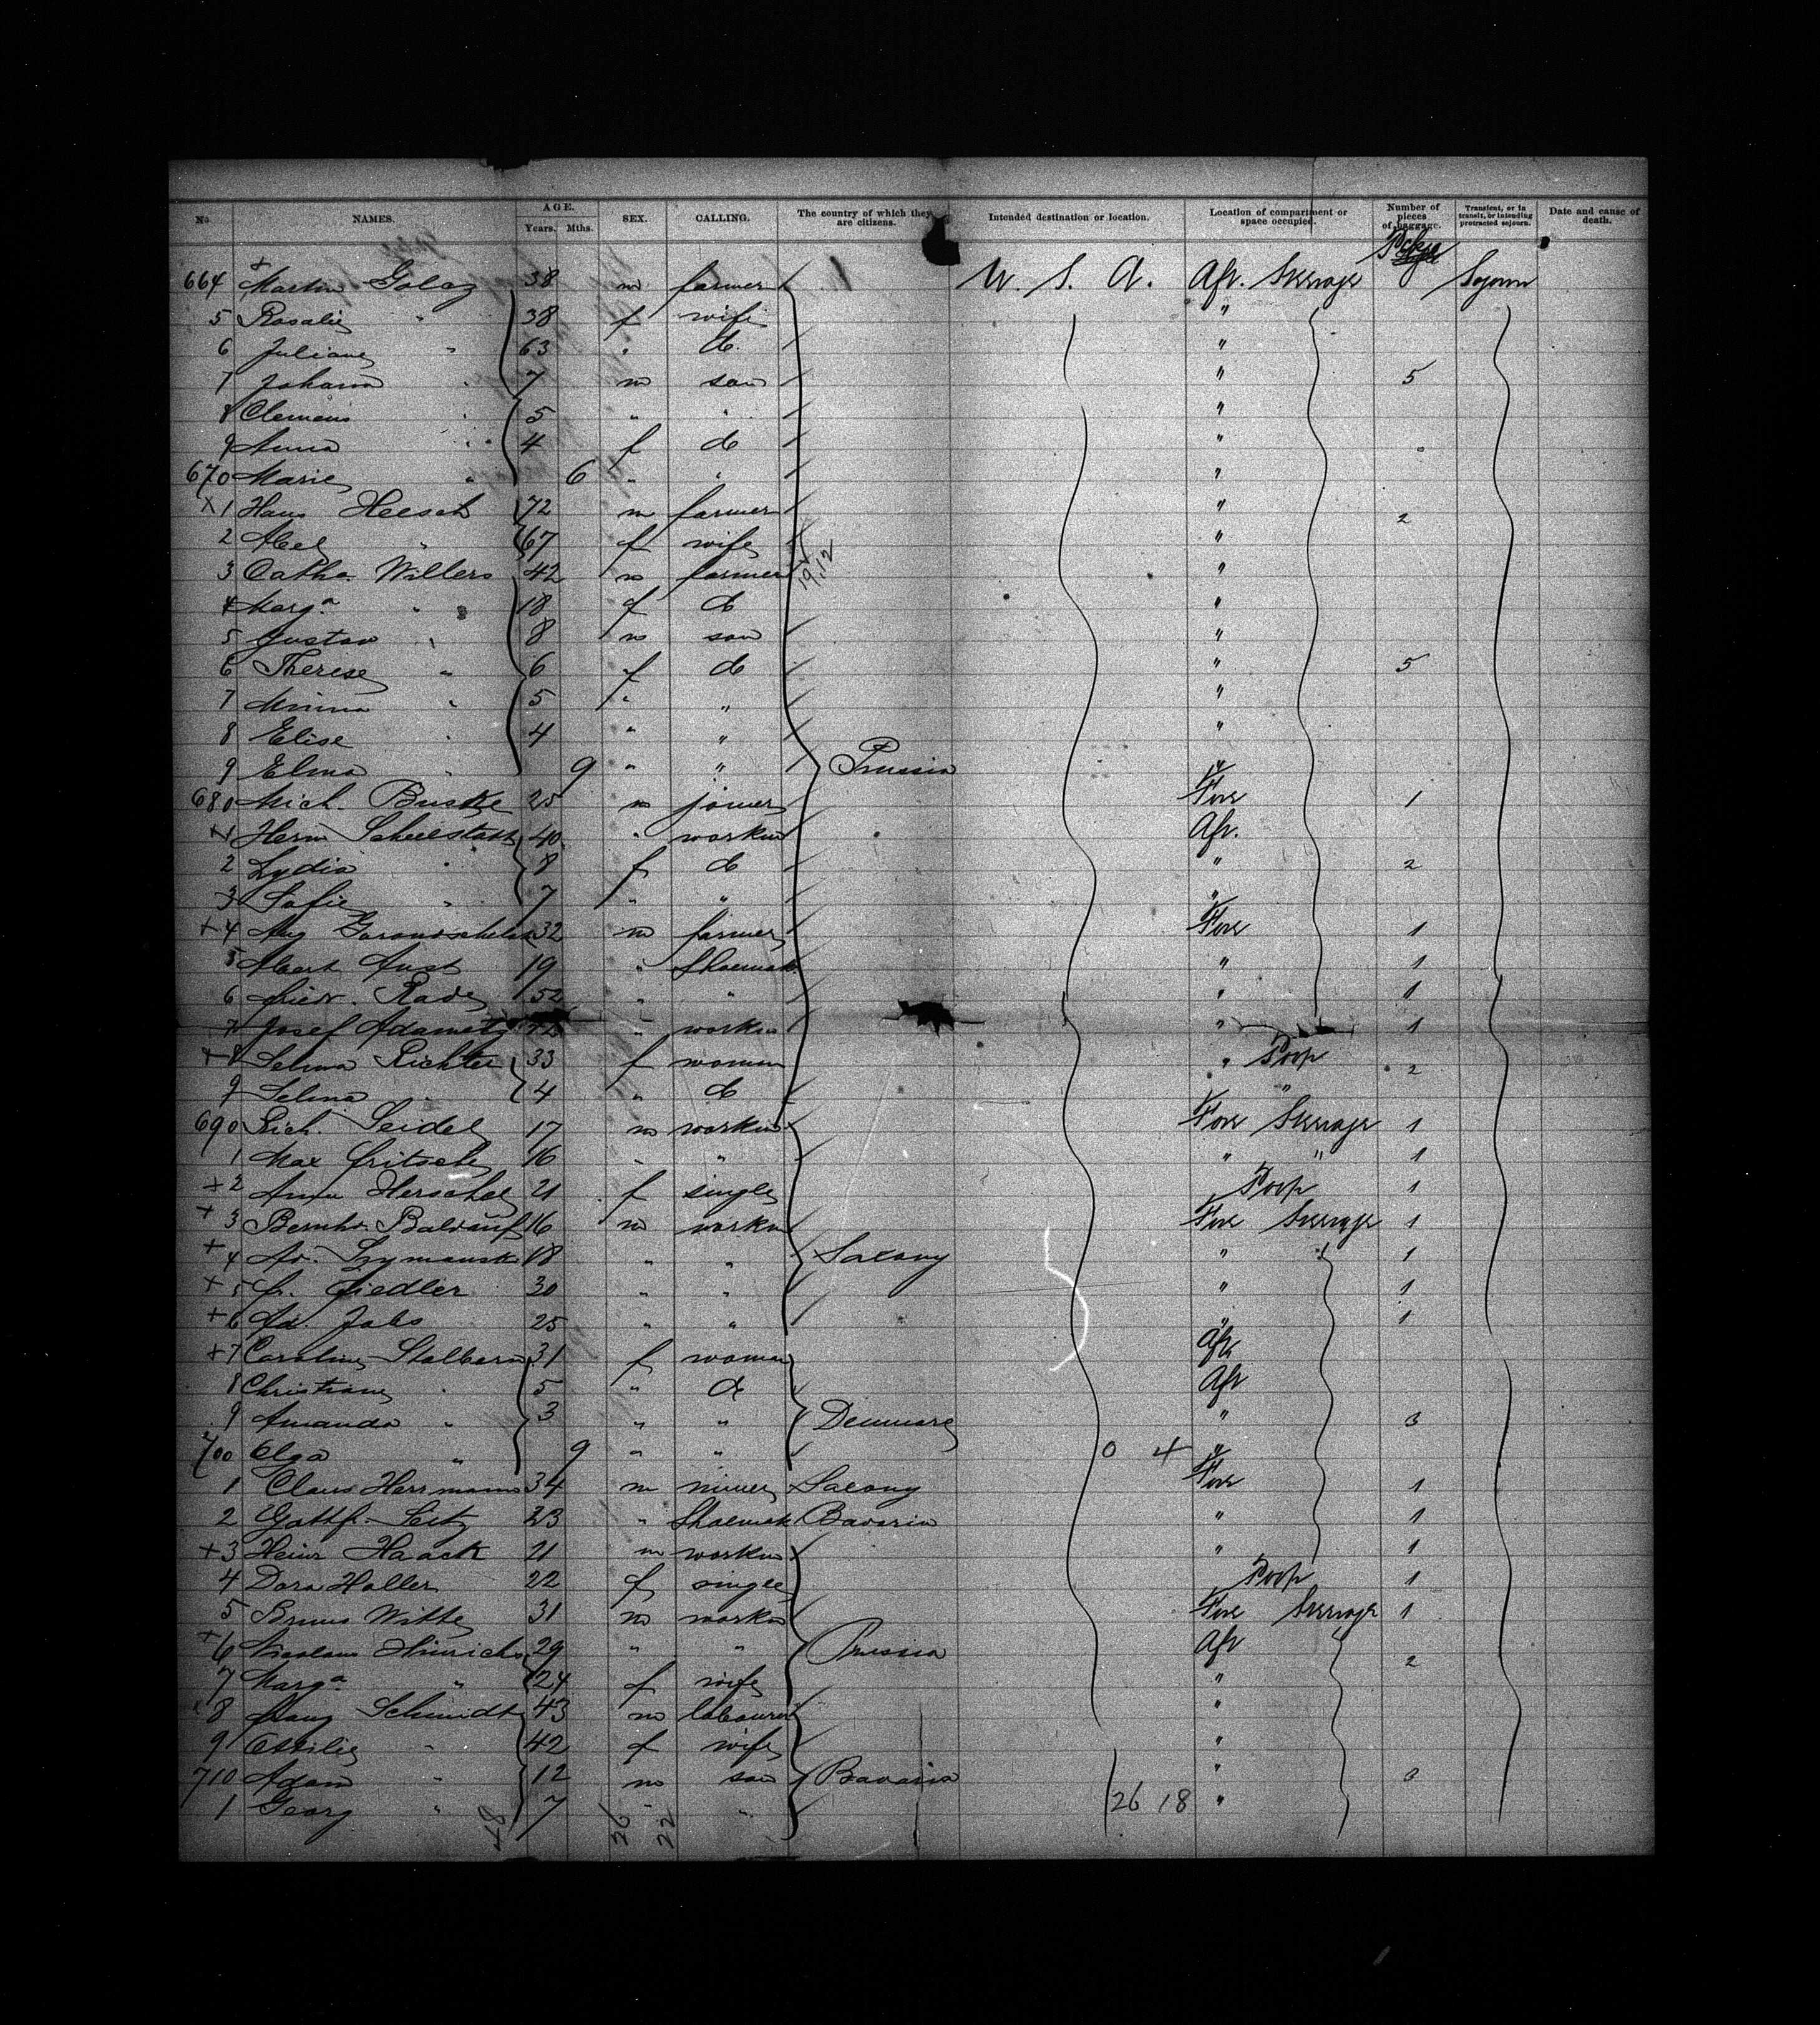 No NAMES. AGE. Years. Mths. SEX. CALLING. The country of which they are citizens. Intended destination or location. Location of compartment or space occupied. Number of pieces of baggage. Transient, or in transit, or intending protracted sojourn. Date and cause of death.
664 Martin Golaz 38 m farmer U. S. A. Aft. Steerage Sojourn
5 Rosalie " 38 f wife "
6 Juliane " 63 " do. "
7 Johann " 7 m son " 5
8 Clemens " 5 " " "
9 Anna " 4 f do "
670 Marie " 6 " " "
x 1 Hans Heesch 72 m farmer " 2
2 Abel " 67 f wife "
3 Catha. Willers 42 m farmer 19,12 "
4 Marga " 18 f do "
5 Gustav " 8 m son "
6 Therese " 6 f do " 5
7 Minna " 5 " " "
8 Elise " 4 " " "
9 Elma " 9 " " Prussia "
680 Mich. Buske 25 m joiner Fore 1
x1 Herm 40 " workm Aft.
2 Lydia " 8 f do " 2
3 Sofie " 7 " " "
+ 4 Aug 32 m farmer Fore 1
5 Albert Aust 19 " Shoemak " 1
6 Friedr. Rade 52 " " " 1
7 Josef Adametz " workm " 1
+ 8 Selma Richter 33 f woman " Poop 2
9 Selma " 4 " do "
690 Rich. Seidel 17 m workm Fore Steerage 1
1 Max Fritsche 16 " " " " 1
+ 2 Anna Herschel 21 f single Poop 1
+ 3 Bernhr. Baldauf 16 m workm Fore Steerage 1
+ 4 Szymansk 18 " " Saxony " " 1
+ 5 Fr. Fiedler 30 " " " 1
+ 6 Ad. Jabs 25 " " " 1
+ 7 Caroline 31 f woman Aft
8 Christiane " 5 " do Aft
9 Amanda " 3 " " Denmark " 3
700 Olga " 9 " " 0 4 "
1 Claus Herrmann 34 m miner Saxony Fore 1
2 Gottfr. Seitz 23 " Shoemak Bavaria " 1
+ 3 Heinr Haack 21 m workm " 1
4 Dora Haller 22 f single Poop 1
5 Bruno Witte 31 m workm Fore Steerage 1
+ 6 Nicolaus Hinrichs 29 " " Prussia Aft 2
7 Marga " 24 f wife "
8 Schmidt 43 m labourer "
9 Ottilie " 42 f wife "
710 Adam " 12 m son Bavaria " 3
1 Georg " 7 " " 26 18 "
48 26 22